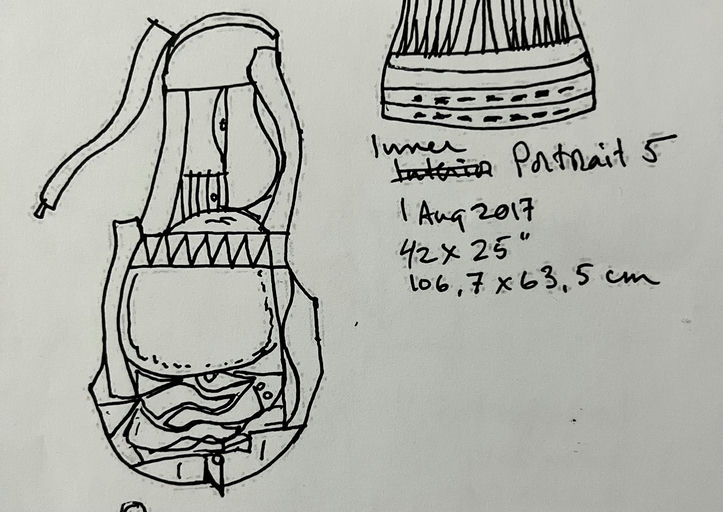 Inner
Interior Portrait 5
1 Aug 2017
42 x 25"
106,7 x 63,5 cm